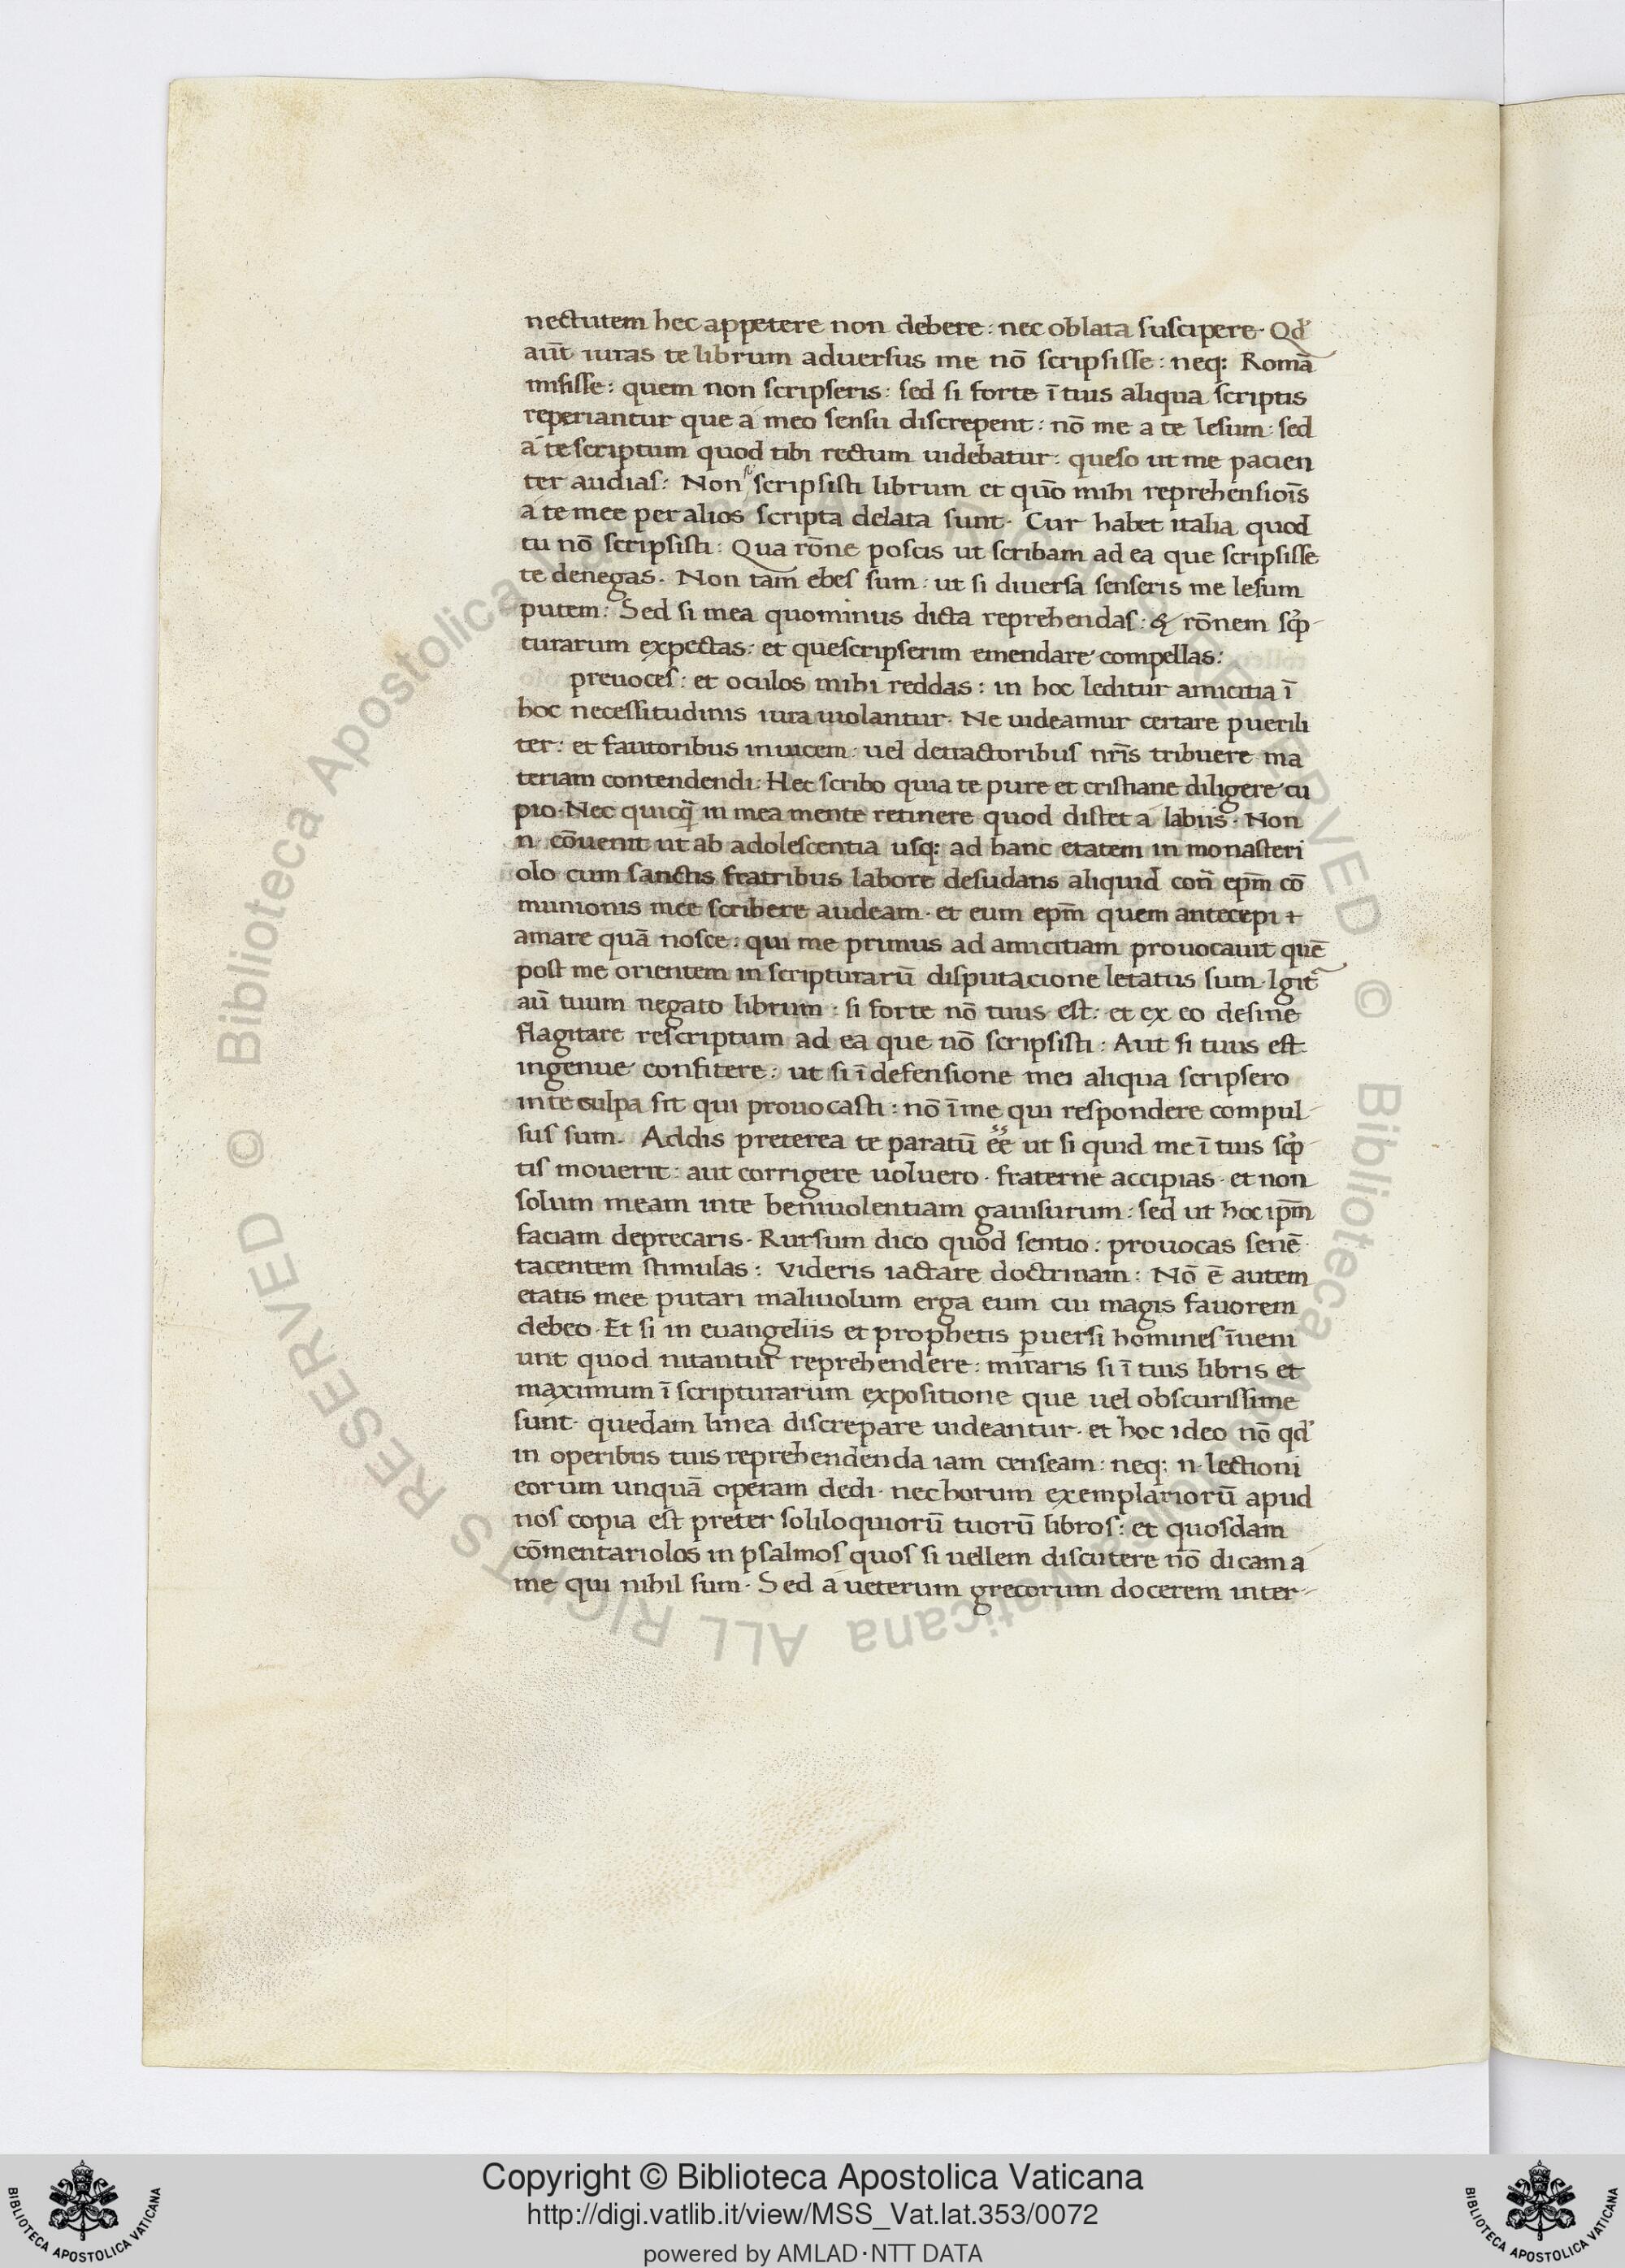 nectutem hec appetere non debere: nec oblata suscipere. Qd'
aūt iuras te librum aduersus me nō scripsisse: neq; Romā
misisse: quem non scripseris: sed si forte ī tuis aliqua scriptis
reperiantur que a meo sensu discrepent: nō me a te lesum: sed
a te scriptum quod tibi rectum uidebatur: queso ut me pacien
ter audias: Non scripsisti librum et quō mihi reprehensiois̄
a te mee per alios scripta delata sunt. Cur habet italia quod
tu nō scripsisti: Qua rōne poscis ut scribam ad ea que scripsisse
te denegas. Non tam ebes sum: ut si diuersa senseris me lesum
putem: Sed si mea quominus dicta reprehendas: & rōnem scp̉
turarum expectas: et que scripserim emendare compellas:
preuoces: et oculos mihi reddas: in hoc leditur amicitia ī
hoc necessitudinis iura uiolantur. Ne uideamur certare puerili
ter: et fautoribus inuicem: uel detractoribus nr̄is tribuere ma
teriam contendendi: Hec scribo quia te pure et cristiane diligere cu
pio. Nec quicq̄ in mea mente retinere quod distet a labiis. Non
n. cōuenit ut ab adolescentia usq; ad hanc etatem in monasteri
olo cum sanctis fratribus labore desudans aliquid cont̄ epm̄ cō
munionis mee scribere audeam. et eum epm̄ quem antecepi +
amare quā nosce: qui me primus ad amicitiam prouocauit quē
post me orientem in scripturarū disputacione letatus sum. Igit̄
aū tuum negato librum: si forte nō tuus est: et ex eo desine
flagitare rescriptum ad ea que nō scripsisti: Aut si tuus est
ingenue confitere: ut si ī defensione mei aliqua scripsero
in te culpa sit qui prouocasti: nō ī me qui respondere compul
sus sum. Addis preterea te paratū ēē ut si quid me ī tuis scp̉
tis mouerit: aut corrigere uoluero. fraterne accipias. et non
solum meam in te beniuolentiam gauisurum: sed ut hoc ipm̄
faciam deprecaris. Rursum dico quod sentio: prouocas senē
tacentem stimulas: Videris iactare doctrinam: Nō ē autem
etatis mee putari maliuolum erga eum cui magis fauorem
debeo. Et si in euangeliis et prophetis p̱uersi homines īueni
unt quod nitantur reprehendere: miraris si ī tuis libris et
maximum ī scripturarum expositione que uel obscurissime
sunt. quedam linea discrepare uideantur. et hoc ideo nō qd'
in operibus tuis reprehendenda iam censeam: neq; n. lectioni
eorum unquā operam dedi. nec horum exemplariorū apud
nos copia est preter soliloquiorū tuorū libros: et quosdam
cōmentariolos in psalmos quos si uellem discutere nō dicam a
me qui nihil sum. Sed a ueterum grecorum docerem inter-
Copyright © Biblioteca Apostolica Vaticana
http://digi.vatlib.it/view/MSS_Vat.lat.353/0072
powered by AMLAD·NTT DATA
BIBLIOTECA APOSTOLICA VATICANA
BIBLIOTECA APOSTOLICA VATICANA
© Biblioteca Apostolica Vaticana ALL RIGHTS RESERVED
© Biblioteca Apostolica Vaticana ALL RIGHTS RESERVED